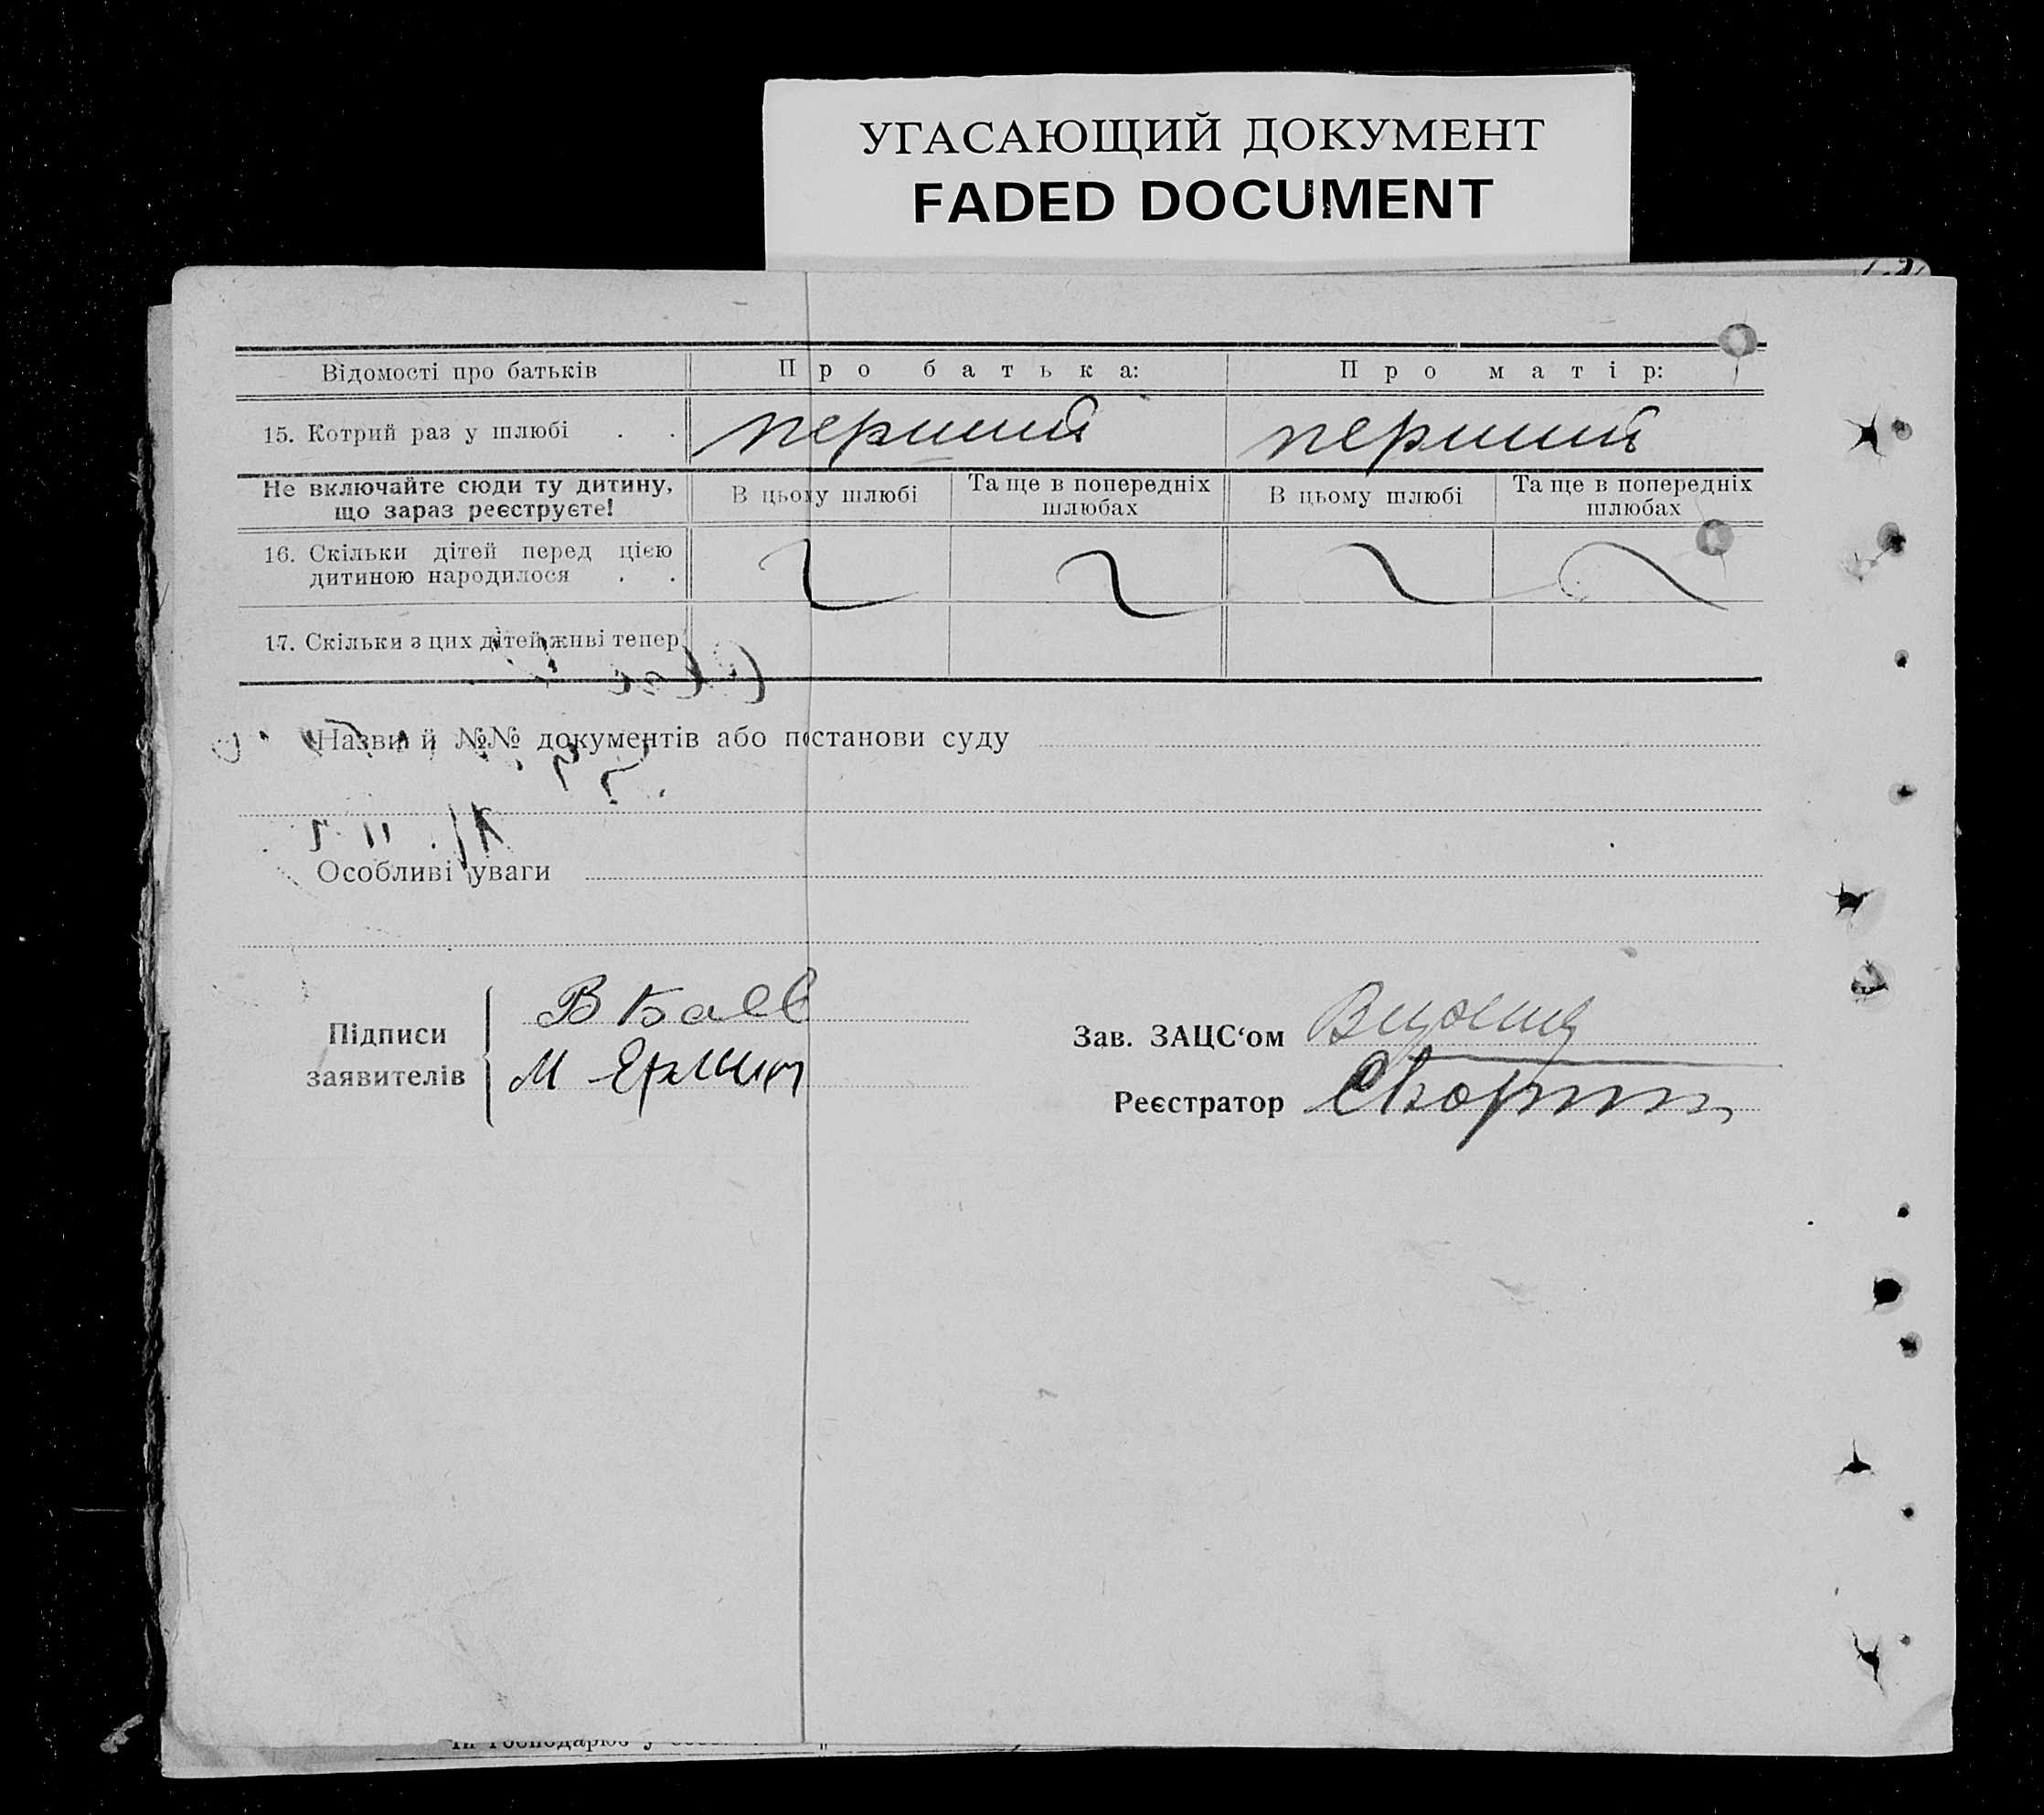 УГАСАЮЩИЙ ДОКУМЕНТ
FADED DOCUMENT
Відомості про батьків Про батька: Про матір:
15. Котрий раз у шлюбі . . перший перший
Не включайте сюди ту дитину, що зараз реєструєте! В цьому шлюбі Та ще в попередніх шлюбах В цьому шлюбі Та ще в попередніх шлюбах
16. Скільки дітей перед цією
дитиною народилося . .
17. Скільки з цих дітей живі тепер
Назви й №№ документів або постанови суду
Особливі уваги
Підписи заявителів
В Баев
М
Зав. ЗАЦС‘ом
Реєстратор